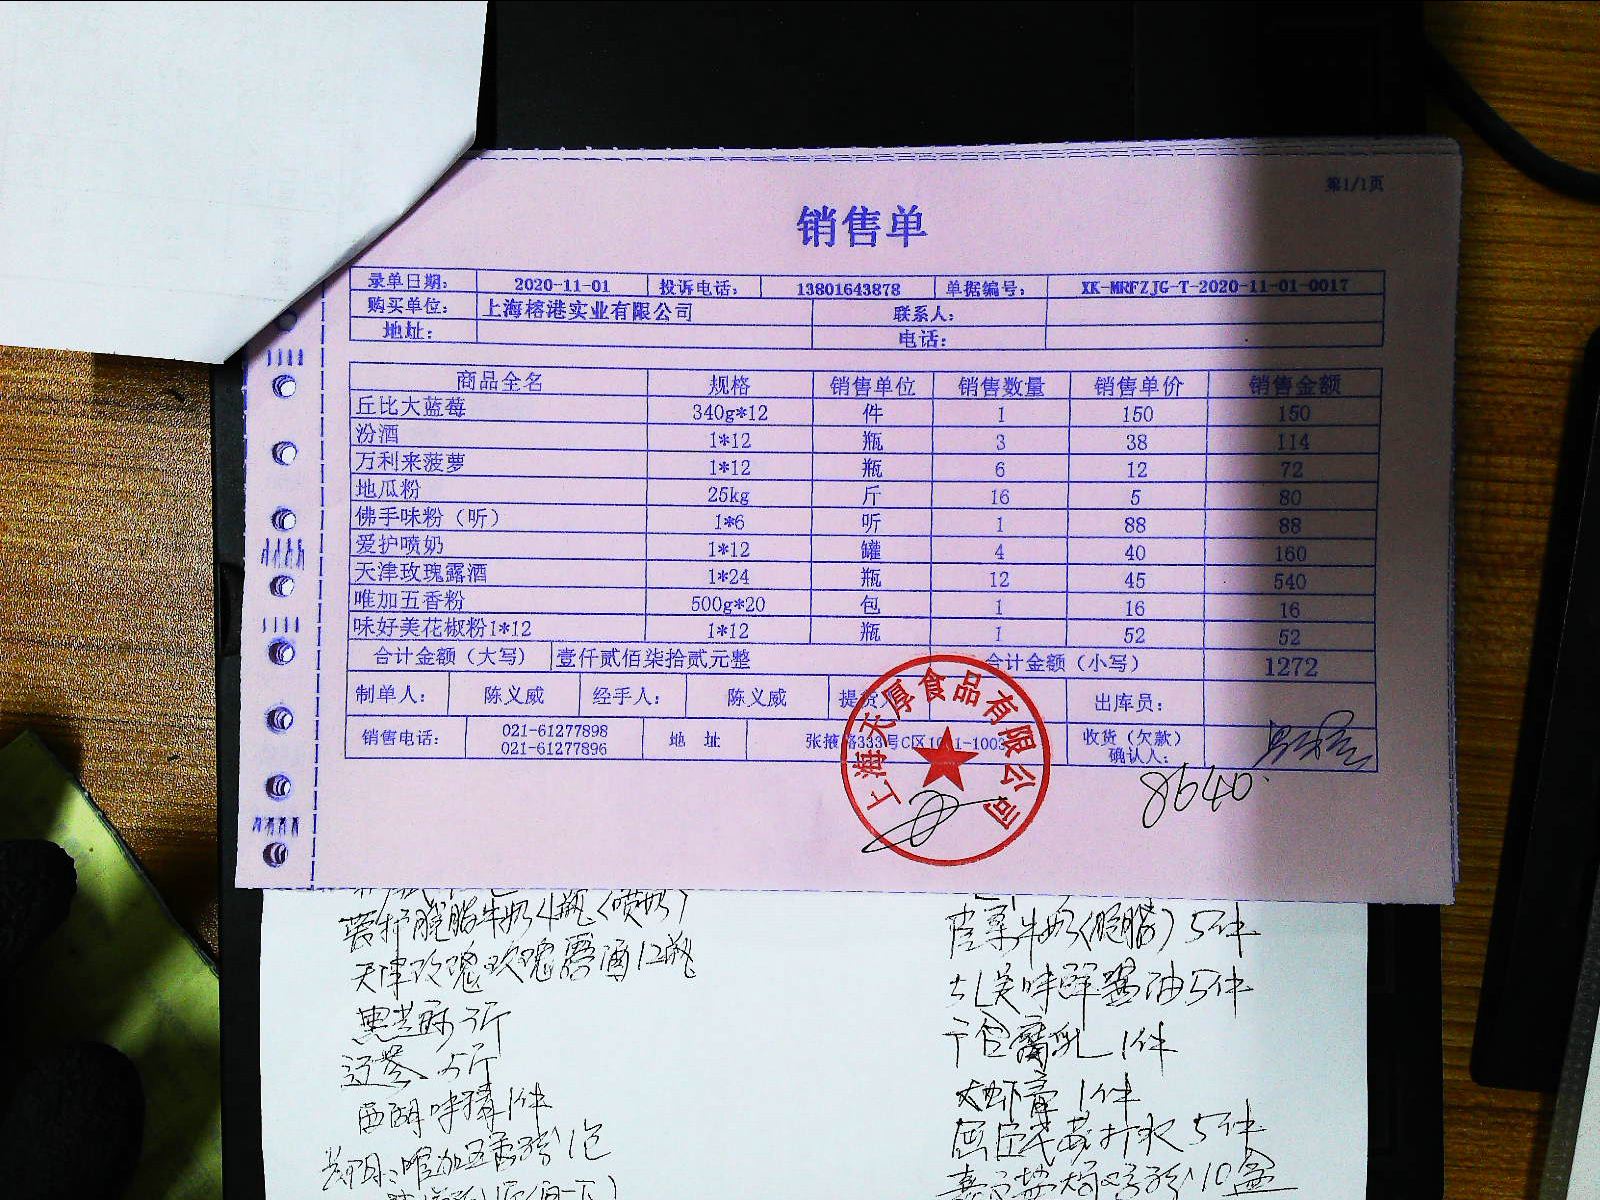 第1/1页
销售单
录单日期： 2020-11-01 投诉电话： 13801643878 单据编号： XK-MRFZJG-T-2020-11-01-0017
购买单位： 上海榕港实业有限公司 联系人：
地址： 电话：
商品全名 规格 销售单位 销售数量 销售单价 销售金额
丘比大蓝莓 340g*12 件 1 150 150
汾酒 1*12 瓶 3 38 114
万利来菠萝 1*12 瓶 6 12 72
地瓜粉 25kg 斤 16 5 80
佛手味粉（听） 1*6 听 1 88 88
爱护喷奶 1*12 罐 4 40 160
天津玫瑰露酒 1*24 瓶 12 45 540
唯加五香粉 500g*20 包 1 16 16
味好美花椒粉1*12 1*12 瓶 1 52 52
合计金额（大写） 壹仟贰佰柒拾贰元整 合计金额（小写） 1272
制单人： 陈义威 经手人： 陈义威 提货人 出库员：
销售电话： 021-61277898 地 址 张掖路333号C区1001-1003 收货（欠款）
021-61277896 确认人：
上海天厚食品有限公司
8640.
脱脂牛奶4瓶（喷奶）
天津玫瑰玫瑰露酒12瓶
5斤
西湖味精1件
唯加五香粉1包
牛奶（脱脂）5件
味鲜酱油5件
腐乳1件
大虾膏1件
5件
10盒